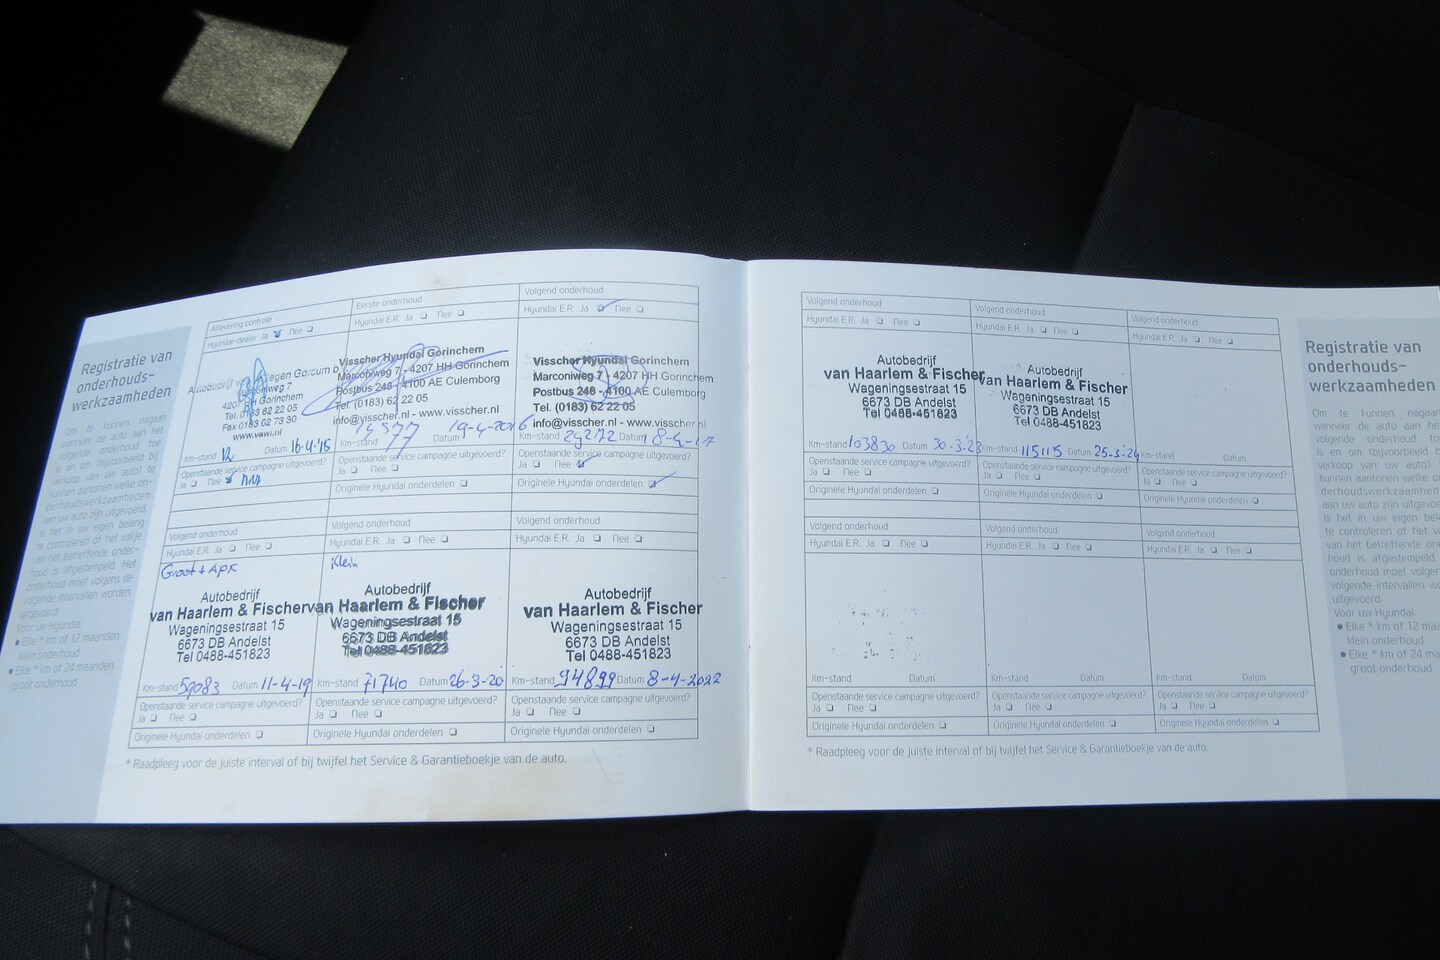 Registratie van
onderhouds-
werkzaamheden
Om te kunnen nagaan
wanneer de auto aan het
volgende onderhoud toe
is en om (bijvoorbeeld bij
verkoop van uw auto) te
kunnen aantonen welke on-
derhoudswerkzaamheden
aan uw auto zijn uitgevoerd,
is het in uw eigen belang
te controleren of het vakje
van het betreffende onder-
houd is afgestempeld. Het
onderhoud moet volgens de
volgende intervallen worden
uitgevoerd:
Voor uw Hyundai:
● Elke * km of 12 maanden
klein onderhoud
● Elke * km of 24 maanden
groot onderhoud
Aflevering controle
Hyundai-dealer Ja Nee
Gorinchem
Tel. 0183 62 22 05
Fax 0183 62 73 30
Km-stand 12 Datum 16-4-'15
Openstaande service campagne uitgevoerd?
Ja Nee
Eerste onderhoud
Hyundai E.R. Ja Nee
Visscher Hyundai Gorinchem
Marconiweg 7 - 4207 HH Gorinchem
Postbus 248 - 4100 AE Culemborg
Tel. (0183) 62 22 05
info@visscher.nl - www.visscher.nl
Km-stand Datum 19-4-2016
Openstaande service campagne uitgevoerd?
Ja Nee
Originele Hyundai onderdelen
Volgend onderhoud
Hyundai E.R. Ja Nee
Visscher Hyundai Gorinchem
Marconiweg 7 - 4207 HH Gorinchem
Postbus 248 - 4100 AE Culemborg
Tel. (0183) 62 22 05
info@visscher.nl - www.visscher.nl
Km-stand 29272 Datum 18-4-17
Openstaande service campagne uitgevoerd?
Ja Nee
Originele Hyundai onderdelen
Volgend onderhoud
Hyundai E.R. Ja Nee
Groot + APK
Autobedrijf
van Haarlem & Fischer
Wageningsestraat 15
6673 DB Andelst
Tel 0488-451823
Km-stand 59083 Datum 11-4-19
Openstaande service campagne uitgevoerd?
Ja Nee
Originele Hyundai onderdelen
Volgend onderhoud
Hyundai E.R. Ja Nee
Klein
Autobedrijf
van Haarlem & Fischer
Wageningsestraat 15
6673 DB Andelst
Tel 0488-451823
Km-stand 71740 Datum 26-3-20
Openstaande service campagne uitgevoerd?
Ja Nee
Originele Hyundai onderdelen
Volgend onderhoud
Hyundai E.R. Ja Nee
Autobedrijf
van Haarlem & Fischer
Wageningsestraat 15
6673 DB Andelst
Tel 0488-451823
Km-stand 94899 Datum 8-4-2022
Openstaande service campagne uitgevoerd?
Ja Nee
Originele Hyundai onderdelen
* Raadpleeg voor de juiste interval of bij twijfel het Service & Garantieboekje van de auto.
Volgend onderhoud
Hyundai E.R. Ja Nee
Autobedrijf
van Haarlem & Fischer
Wageningsestraat 15
6673 DB Andelst
Tel 0488-451823
Km-stand 103830 Datum 30-3-'23
Openstaande service campagne uitgevoerd?
Ja Nee
Originele Hyundai onderdelen
Volgend onderhoud
Hyundai E.R. Ja Nee
Autobedrijf
van Haarlem & Fischer
Wageningsestraat 15
6673 DB Andelst
Tel 0488-451823
Km-stand 115115 Datum 25-3-'24
Openstaande service campagne uitgevoerd?
Ja Nee
Originele Hyundai onderdelen
Volgend onderhoud
Hyundai E.R. Ja Nee
Km-stand Datum
Openstaande service campagne uitgevoerd?
Ja Nee
Originele Hyundai onderdelen
Volgend onderhoud
Hyundai E.R. Ja Nee
Km-stand Datum
Openstaande service campagne uitgevoerd?
Ja Nee
Originele Hyundai onderdelen
Volgend onderhoud
Hyundai E.R. Ja Nee
Km-stand Datum
Openstaande service campagne uitgevoerd?
Ja Nee
Originele Hyundai onderdelen
Volgend onderhoud
Hyundai E.R. Ja Nee
Km-stand Datum
Openstaande service campagne uitgevoerd?
Ja Nee
Originele Hyundai onderdelen
* Raadpleeg voor de juiste interval of bij twijfel het Service & Garantieboekje van de auto.
Registratie van
onderhouds-
werkzaamheden
Om te kunnen nagaan
wanneer de auto aan het
volgende onderhoud
is en om (bijvoorbeeld
verkoop van uw auto)
kunnen aantonen welke
derhoudswerkzaamhed
aan uw auto zijn uitgevoe
is het in uw eigen bela
te controleren of het
van het betreffende
houd is afgestempeld
onderhoud moet volgen
volgende intervallen
uitgevoerd:
Voor uw Hyundai:
● Elke * km of 12 maa
klein onderhoud
● Elke * km of 24 ma
groot onderhoud